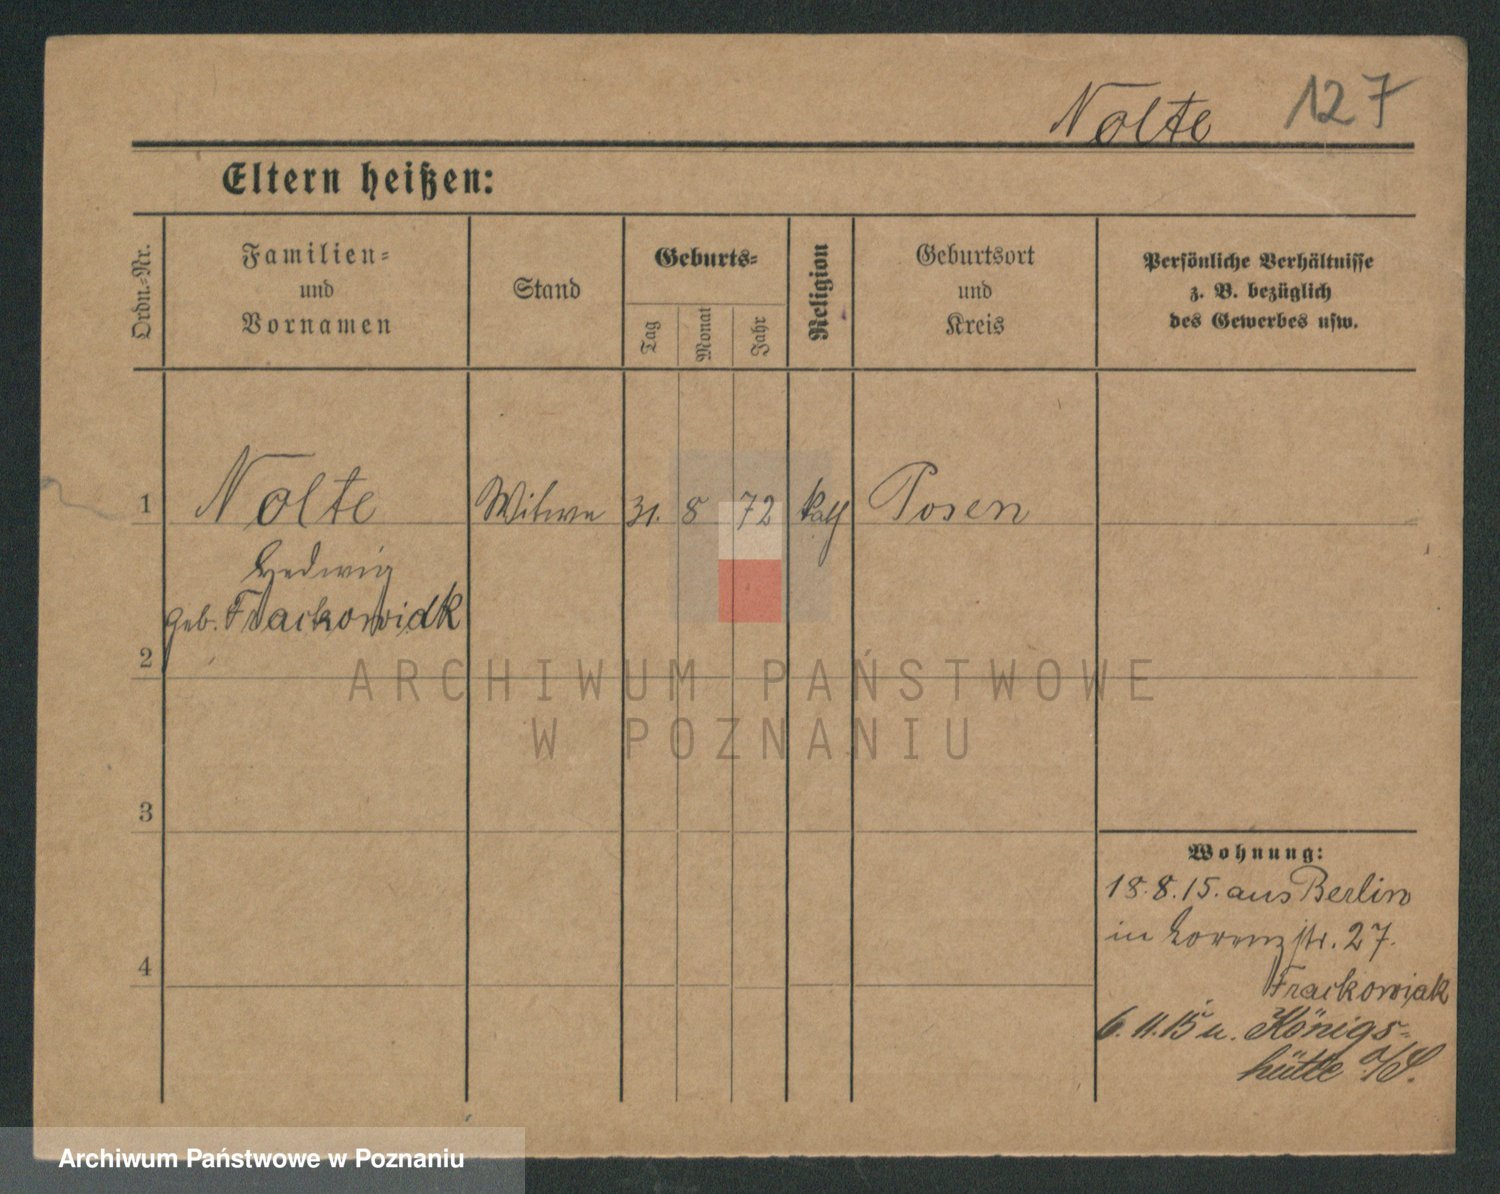 Nolte 127
Eltern heißen:
Ordn.=Nr.
Familien=
und
Vornamen
Stand
Geburts=
Tag
Monat
Jahr
Religion
Geburtsort
und
Kreis
Persönliche Verhältnisse
z. B. bezüglich
des Gewerbes usw.
1 Nolte Witwe 31. 8 72 kath Posen
Hedwig
geb. Frackowiak
2
ARCHIWUM PAŃSTWOWE
W POZNANIU
3
Wohnung:
18.8.15. aus Berlin
in Lorenzstr. 27.
4
Frackowiak
6.11.15 n. Königs-
hütte O/S.
Archiwum Państwowe w Poznaniu